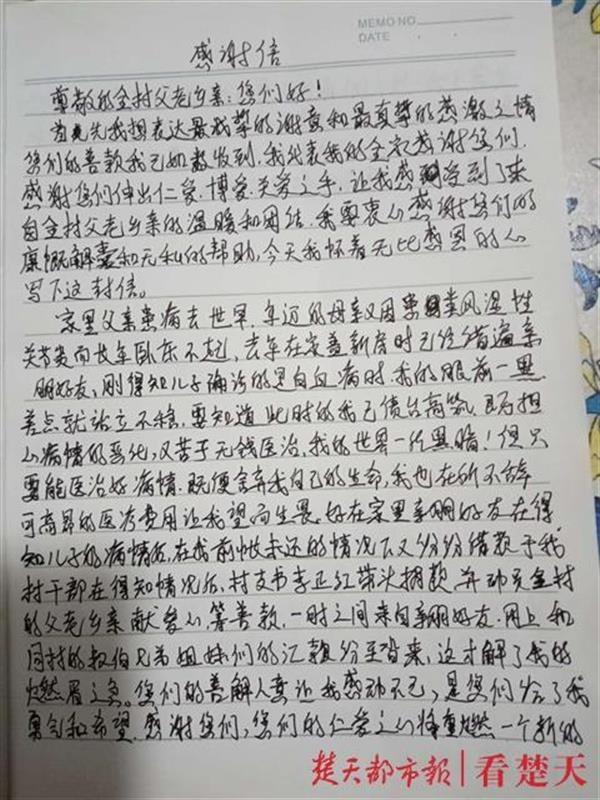 MEMO NO.
DATE
感谢信
尊敬的全村父老乡亲:您们好!
首先我想表达最诚挚的谢意和最真挚的感激之情
您们的善款我已如数收到,我代表我的全家感谢您们.
感谢您们伸出仁爱.博爱关爱之手,让我感受到了来
自全村父老乡亲的温暖和团结,我要衷心感谢您们的
康慨解囊和无私的帮助,今天我怀着无比感恩的心
写下这封信。
家里父亲患病去世早,年迈的母亲又因患类风湿性
关节炎而长年卧床不起,去年在家盖新房时已经借遍亲
朋好友,刚得知儿子确诊的是白血病时,我的眼前一黑.
差点就站立不稳,要知道此时的我已债台高筑,既担
心病情的恶化,又苦于无钱医治,我的世界一片黑暗!但只
要能医治好病情.既便舍弃我自己的生命,我也在所不辞
可高昂的医疗费用让我望而生畏。好在家里亲朋好友在得
知儿子的病情后,在我前帐未还的情况下又纷纷借款于我
村干部在得知情况后,村支书李正红带头捐款并动员全村
的父老乡亲献爱心,筹善款,一时之间来自亲朋好友.网上和
同村的叔伯兄弟姐妹们的汇款纷至沓来,这才解了我的
燃眉之急。您们的善解人意让我感动不已,是您们给了我
勇气和希望.感谢您们,您们的仁爱之心将重燃一个新的
楚天都市报|看楚天